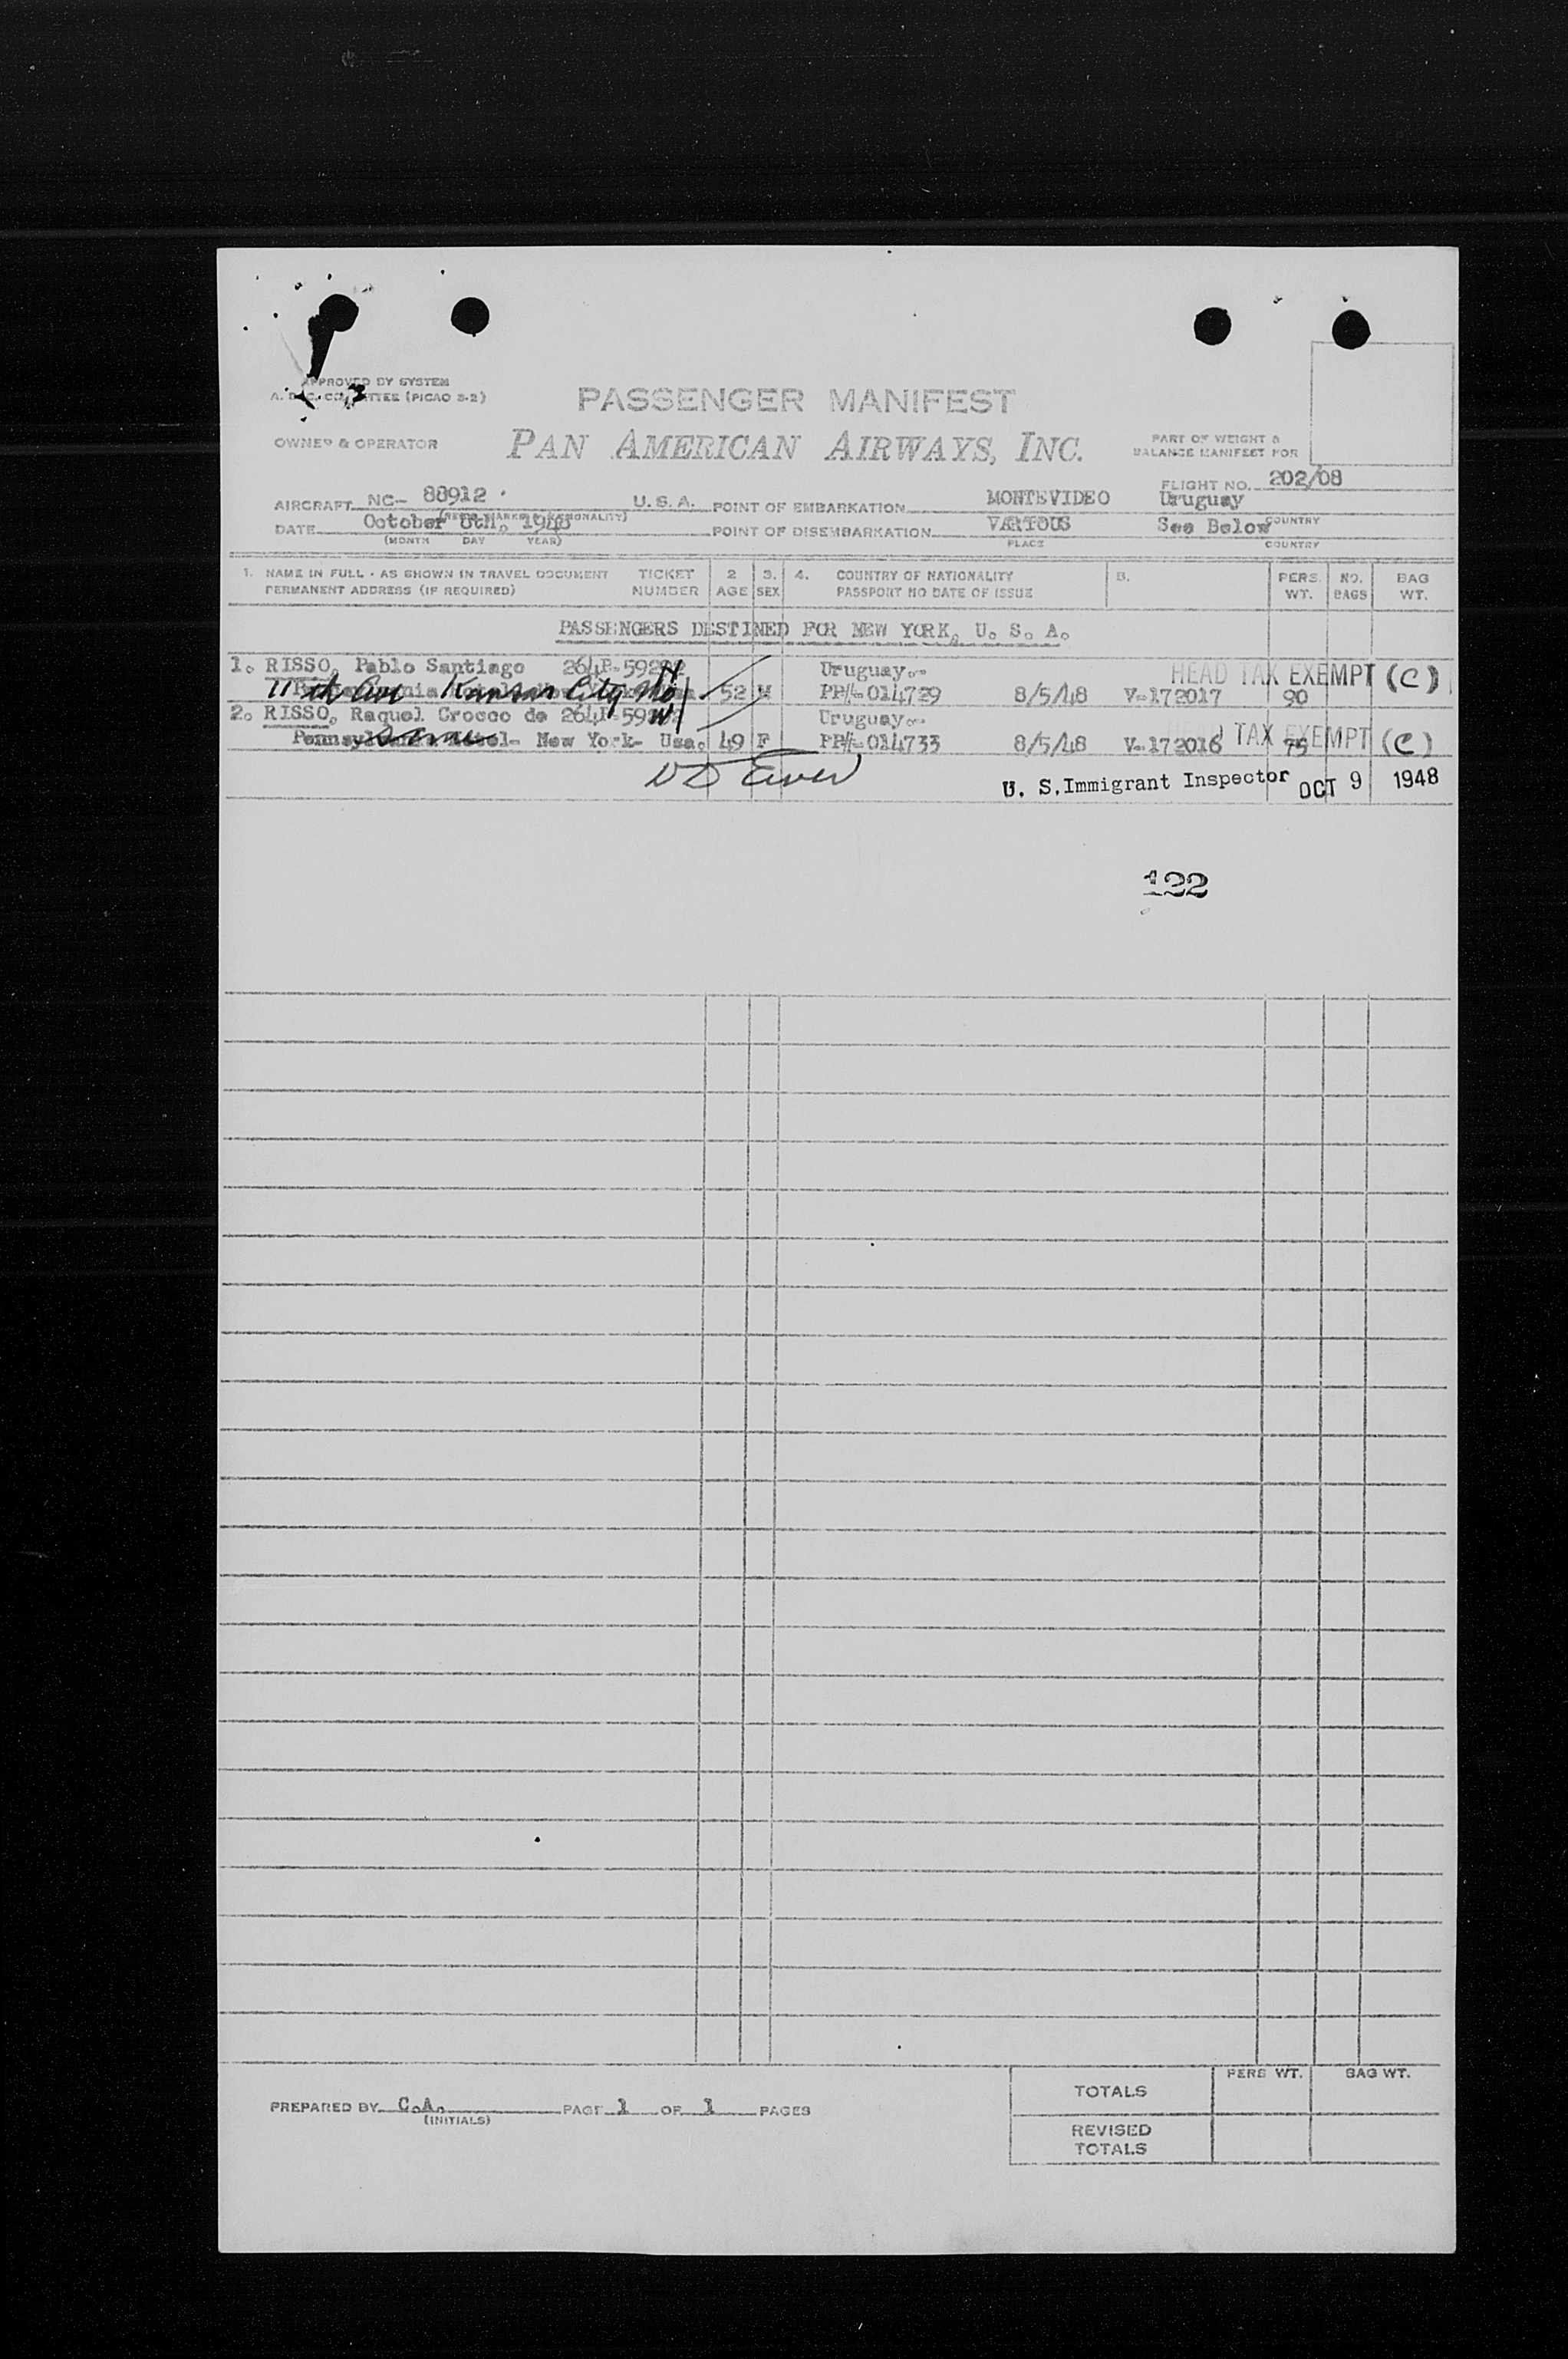 APPROVED BY SYSTEM
PASSENGER MANIFEST
OWNER & OPERATOR PAN AMERICAN AIRWAYS, INC.
PART OF WEIGHT &
BALANCE MANIFEST FOR
FLIGHT NO. 202/08
AIRCRAFT NC- 88912 U. S. A. POINT OF EMBARKATION MONTEVIDEO Uruguay
DATE October 8th, 1948 POINT OF DISEMBARKATION VARIOUS See Below COUNTRY
(MONTH DAY YEAR) PLACE COUNTRY
1. NAME IN FULL - AS SHOWN IN TRAVEL DOCUMENT TICKET 2 3. 4. COUNTRY OF NATIONALITY 5. PERS. NO. BAG
PERMANENT ADDRESS (IF REQUIRED) NUMBER AGE SEX PASSPORT NO DATE OF ISSUE WT. BAGS WT.
PASSENGERS DESTINED FOR NEW YORK, U. S. A.
1. RISSO, Pablo Santiago Uruguay.- HEAD TAX EXEMPT (C)
11 th Ave Kansas City Mo 52 M PP#-014729 8/5/48 V-172017 90
2. RISSO, Raquel Crocco de Uruguay.-
Pennsylvania Hotel- New York- Usa. same 49 F PP#-014733 8/5/48 V-172016 75 TAX EXEMPT (C)
U. S. Immigrant Inspector OCT 9 1948
122
PERS WT. BAG WT.
TOTALS
PREPARED BY C.A. PAGE 1 OF 1 PAGES
(INITIALS)
REVISED
TOTALS